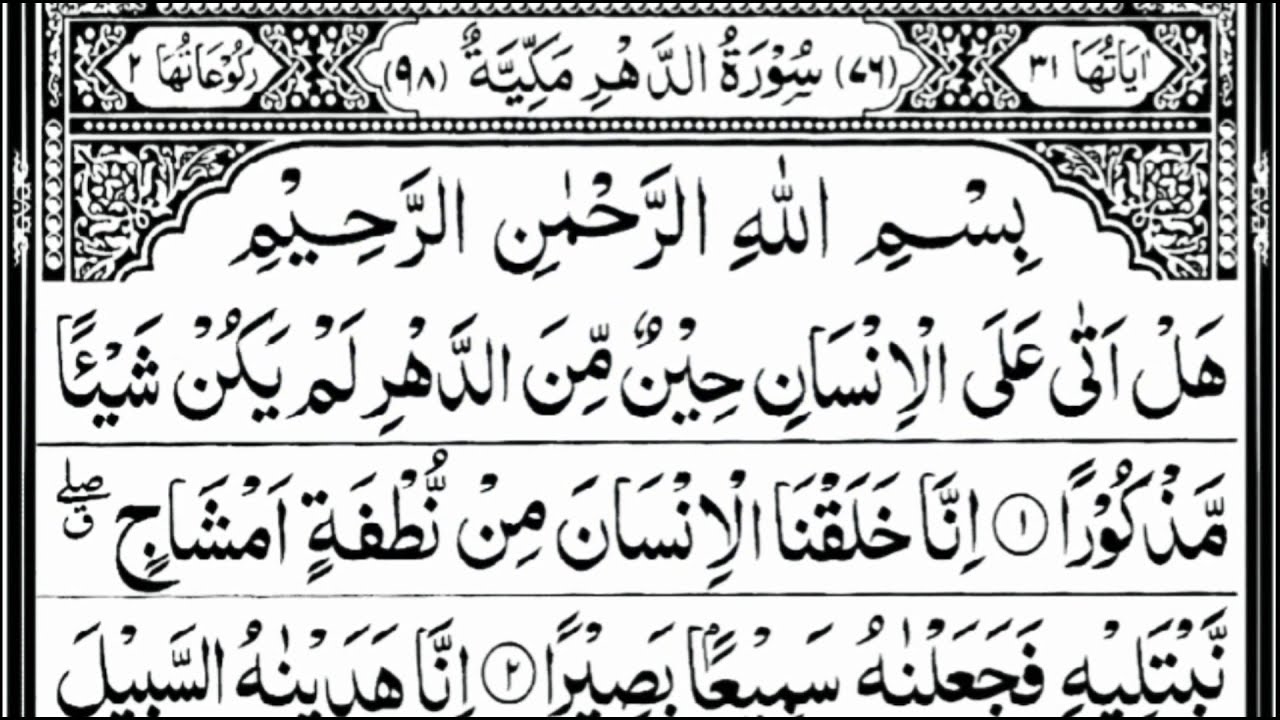 اٰيَاتُهَا ٣١ (٧٦) سُوْرَةُ الدَّهْرِ مَكِّيَّةٌ (٩٨) رُكُوْعَاتُهَا ٢
بِسْمِ اللّٰهِ الرَّحْمٰنِ الرَّحِيْمِ
هَلْ اَتٰى عَلَى الْاِنْسَانِ حِيْنٌ مِّنَ الدَّهْرِ لَمْ يَكُنْ شَيْـًٔا
مَّذْكُوْرًا ﴿١﴾ اِنَّا خَلَقْنَا الْاِنْسَانَ مِنْ نُّطْفَةٍ اَمْشَاجٍ ۖ ق
نَّبْتَلِيْهِ فَجَعَلْنٰهُ سَمِيْعًۢا بَصِيْرًا ﴿٢﴾ اِنَّا هَدَيْنٰهُ السَّبِيْلَ